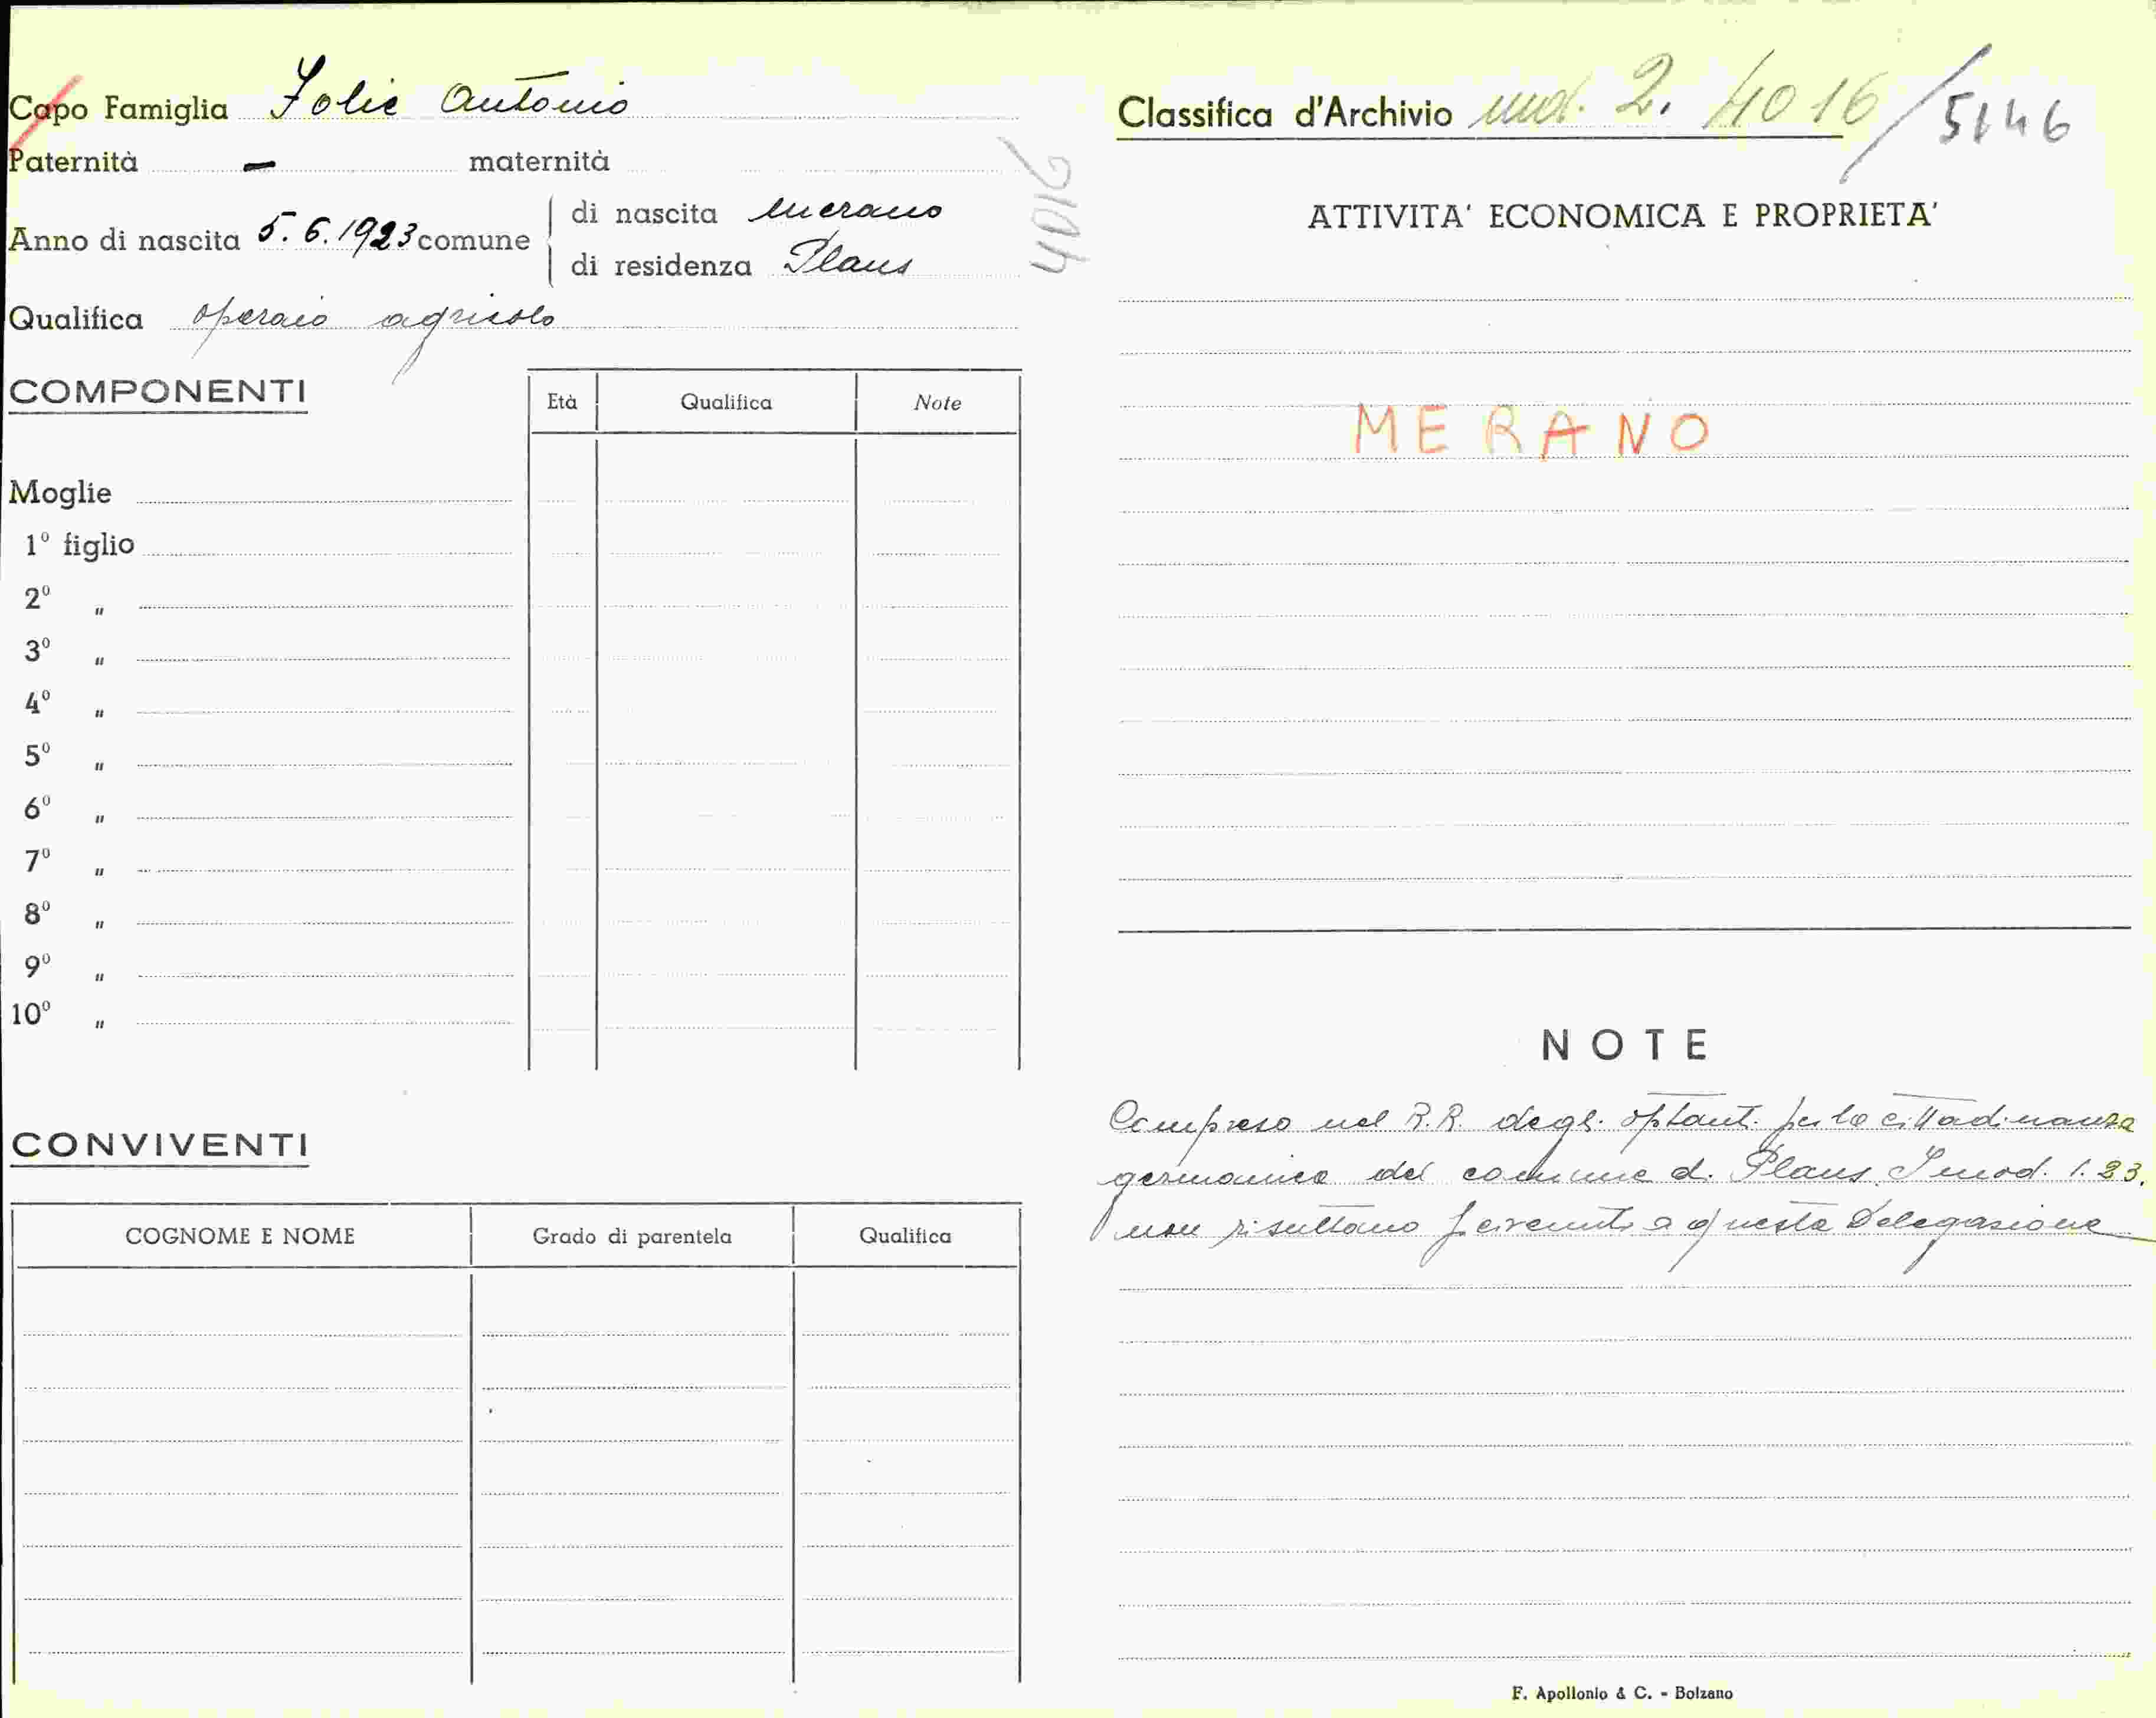 Capo Famiglia Folie Antonio
Paternità - maternità
Anno di nascita 5.6.1923 comune
di nascita Merano
di residenza Plaus
Qualifica operaio agricolo
4016
COMPONENTI
Età Qualifica Note
Moglie
1º figlio
2º "
3º "
4º "
5º "
6º "
7º "
8º "
9º "
10º "
CONVIVENTI
COGNOME E NOME Grado di parentela Qualifica
Classifica d'Archivio mod. 2. 4016/5146
ATTIVITA' ECONOMICA E PROPRIETA'
MERANO
NOTE
Compreso nel R.R. degli optanti per la cittadinanza
germanica del comune di Plaus. I mod. 1.23.
non risultano pervenuti a questa Delegazione
F. Apollonio & C. - Bolzano